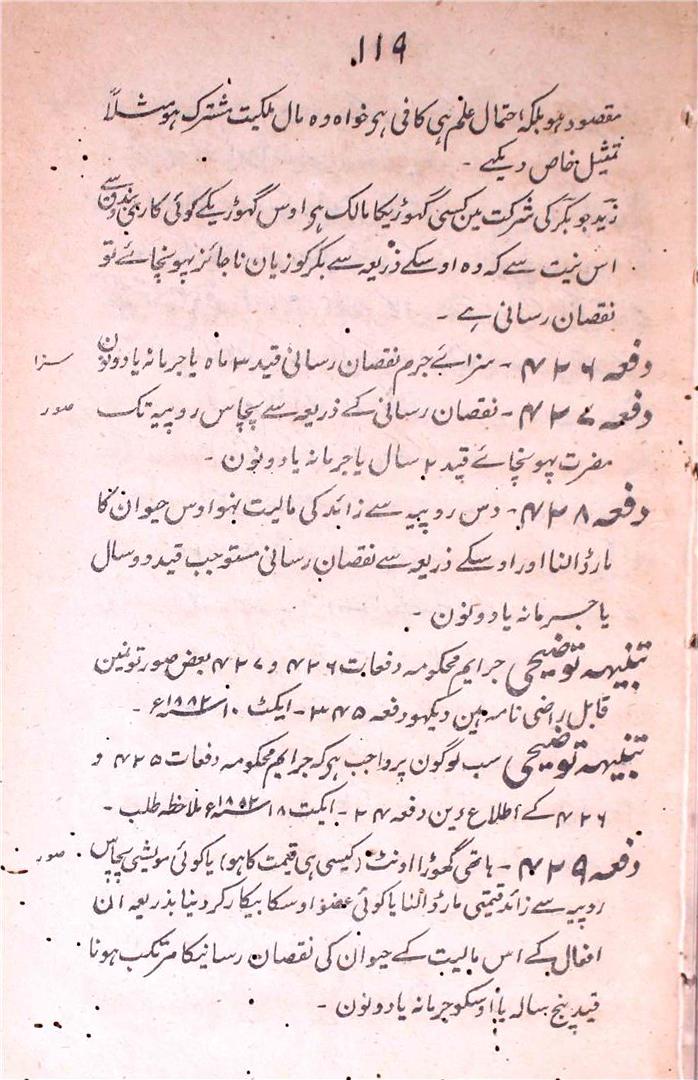 ۱۱۹
مقصود ہو بلکہ احتمال علم ہی کافی ہر خواہ وہ مال ملکیت مشترک ہو مثلاً
تمثیل خاص دیکہے -
زید جو بکر کی شرکت مین کسی گہوڑیکا مالک ہر اوس گہوڑیکے کوئی کاری بندن سے
اس نیت سے کہ وہ اوسکے ذریعہ سے بکر کو زیان ناجائز پہونچائے تو
نقصان رسانی ہے -
دفعہ ۴۲۶ - سزاے جرم نقصان رسانی قید ۳ ماہ یا جرمانہ یا دونون
سزا
دفعہ ۴۲۷ - نقصان رسانی کے ذریعہ سے پچاس روپیہ تک
صور
مضرت پہونچائے قید ۲ سال یا جرمانہ یا دونون -
دفعہ ۴۲۸ - دس روپیہ سے زائد کی مالیت ہنو اوس حیوان کا
مارڈالنا اور اوسکے ذریعہ سے نقصان رسانی مستوجب قید دو سال
یا جرمانہ یا دونون -
تنبیہہ توضیحی جرایم محکومہ دفعات ۴۲۶ و ۴۲۷ بعض صورتونمین
قابل راضی نامہ ہین دیکہو دفعہ ۳۴۵ - ایکٹ ۱۰ سنہ ۱۸۸۲ء -
تنبیہہ توضیحی سب لوگون پر واجب ہر کہ جرایم محکومہ دفعات ۴۲۵ و
۴۲۶ کے اطلاع دین دفعہ ۲۴ - ایکٹ ۱۸ سنہ ۱۸۸۲ء ملاحظہ طلب -
دفعہ ۴۲۹ - ہاتھی گہوڑا اونٹ (کیسی ہی قیمت کا ہو) یا کوئی مویشی پچاس
صور
روپیہ سے زائد قیمتی مارڈالنا یا کوئی عضو اوسکا بیکار کر دنیا بذریعہ ان
افعال کے اس مالیت کے حیوان کی نقصان رسانیکا مرتکب ہونا
قید پنج سالہ یا اوسکو جرمانہ یا دونون -